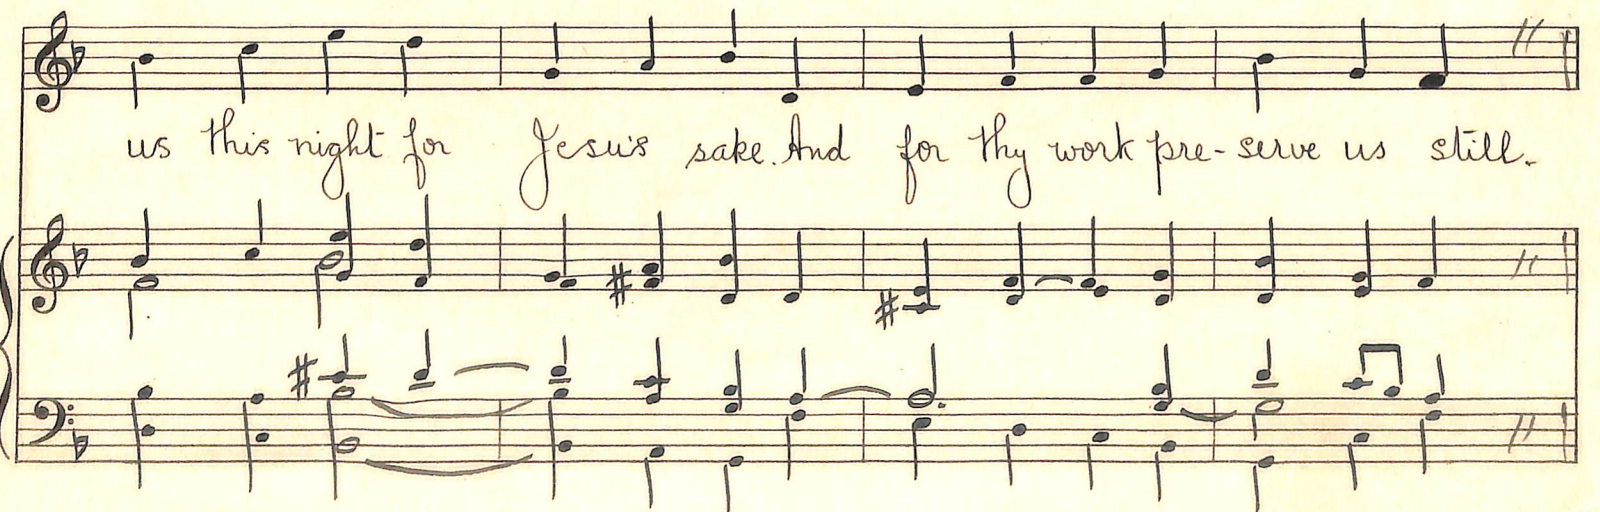 us this night for Jesu's sake. And for thy work pre-serve us still.